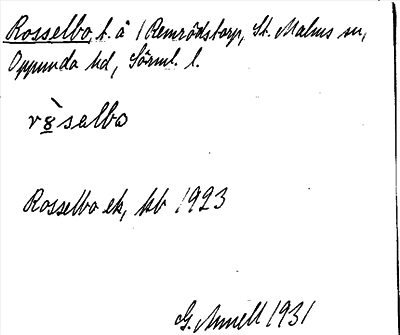 Rosselbo, t. å 1 Remrödstorp, St. Malms sn,
Oppunda hd, Sörml. l.
rò̱salbo
Rosselbo ek, kb 1923
G. Annell 1931